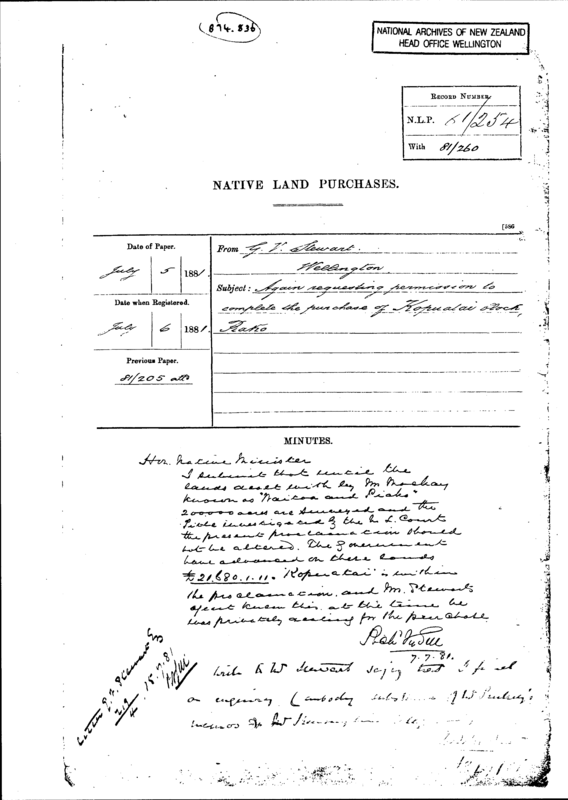 874.836
NATIONAL ARCHIVES OF NEW ZEALAND
HEAD OFFICE WELLINGTON
RECORD NUMBER
N.L.P. 81/254
With 81/260
NATIVE LAND PURCHASES.
[586
Date of Paper.
July 5 1881.
Date when Registered.
July 6 1881.
Previous Paper.
81/205 atts
From G. V. Stewart.
Wellington
Subject: Again requesting permission to
complete the purchase of Kopuatai Block,
Piako
MINUTES.
Hon. Native Minister
I submit that until the
lands dealt with by Mr Mackay
known as "Waitoa and Piako"
200000 acres are surveyed and the
Title investigated by the N. L. Court
the present proclamation should
not be altered. The Government
have advanced on these lands
£21,680.1.11. "Kopuatai" is within
the proclamation, and Mr. Stewart's
agent knew this at the time he
was privately acting for the purchase
7.7.81.
Write to Mr Stewart saying that I
on enquiry (embody substance of Mr
memo
Letter G. V. Stewart Esq
219/4 15.7.81